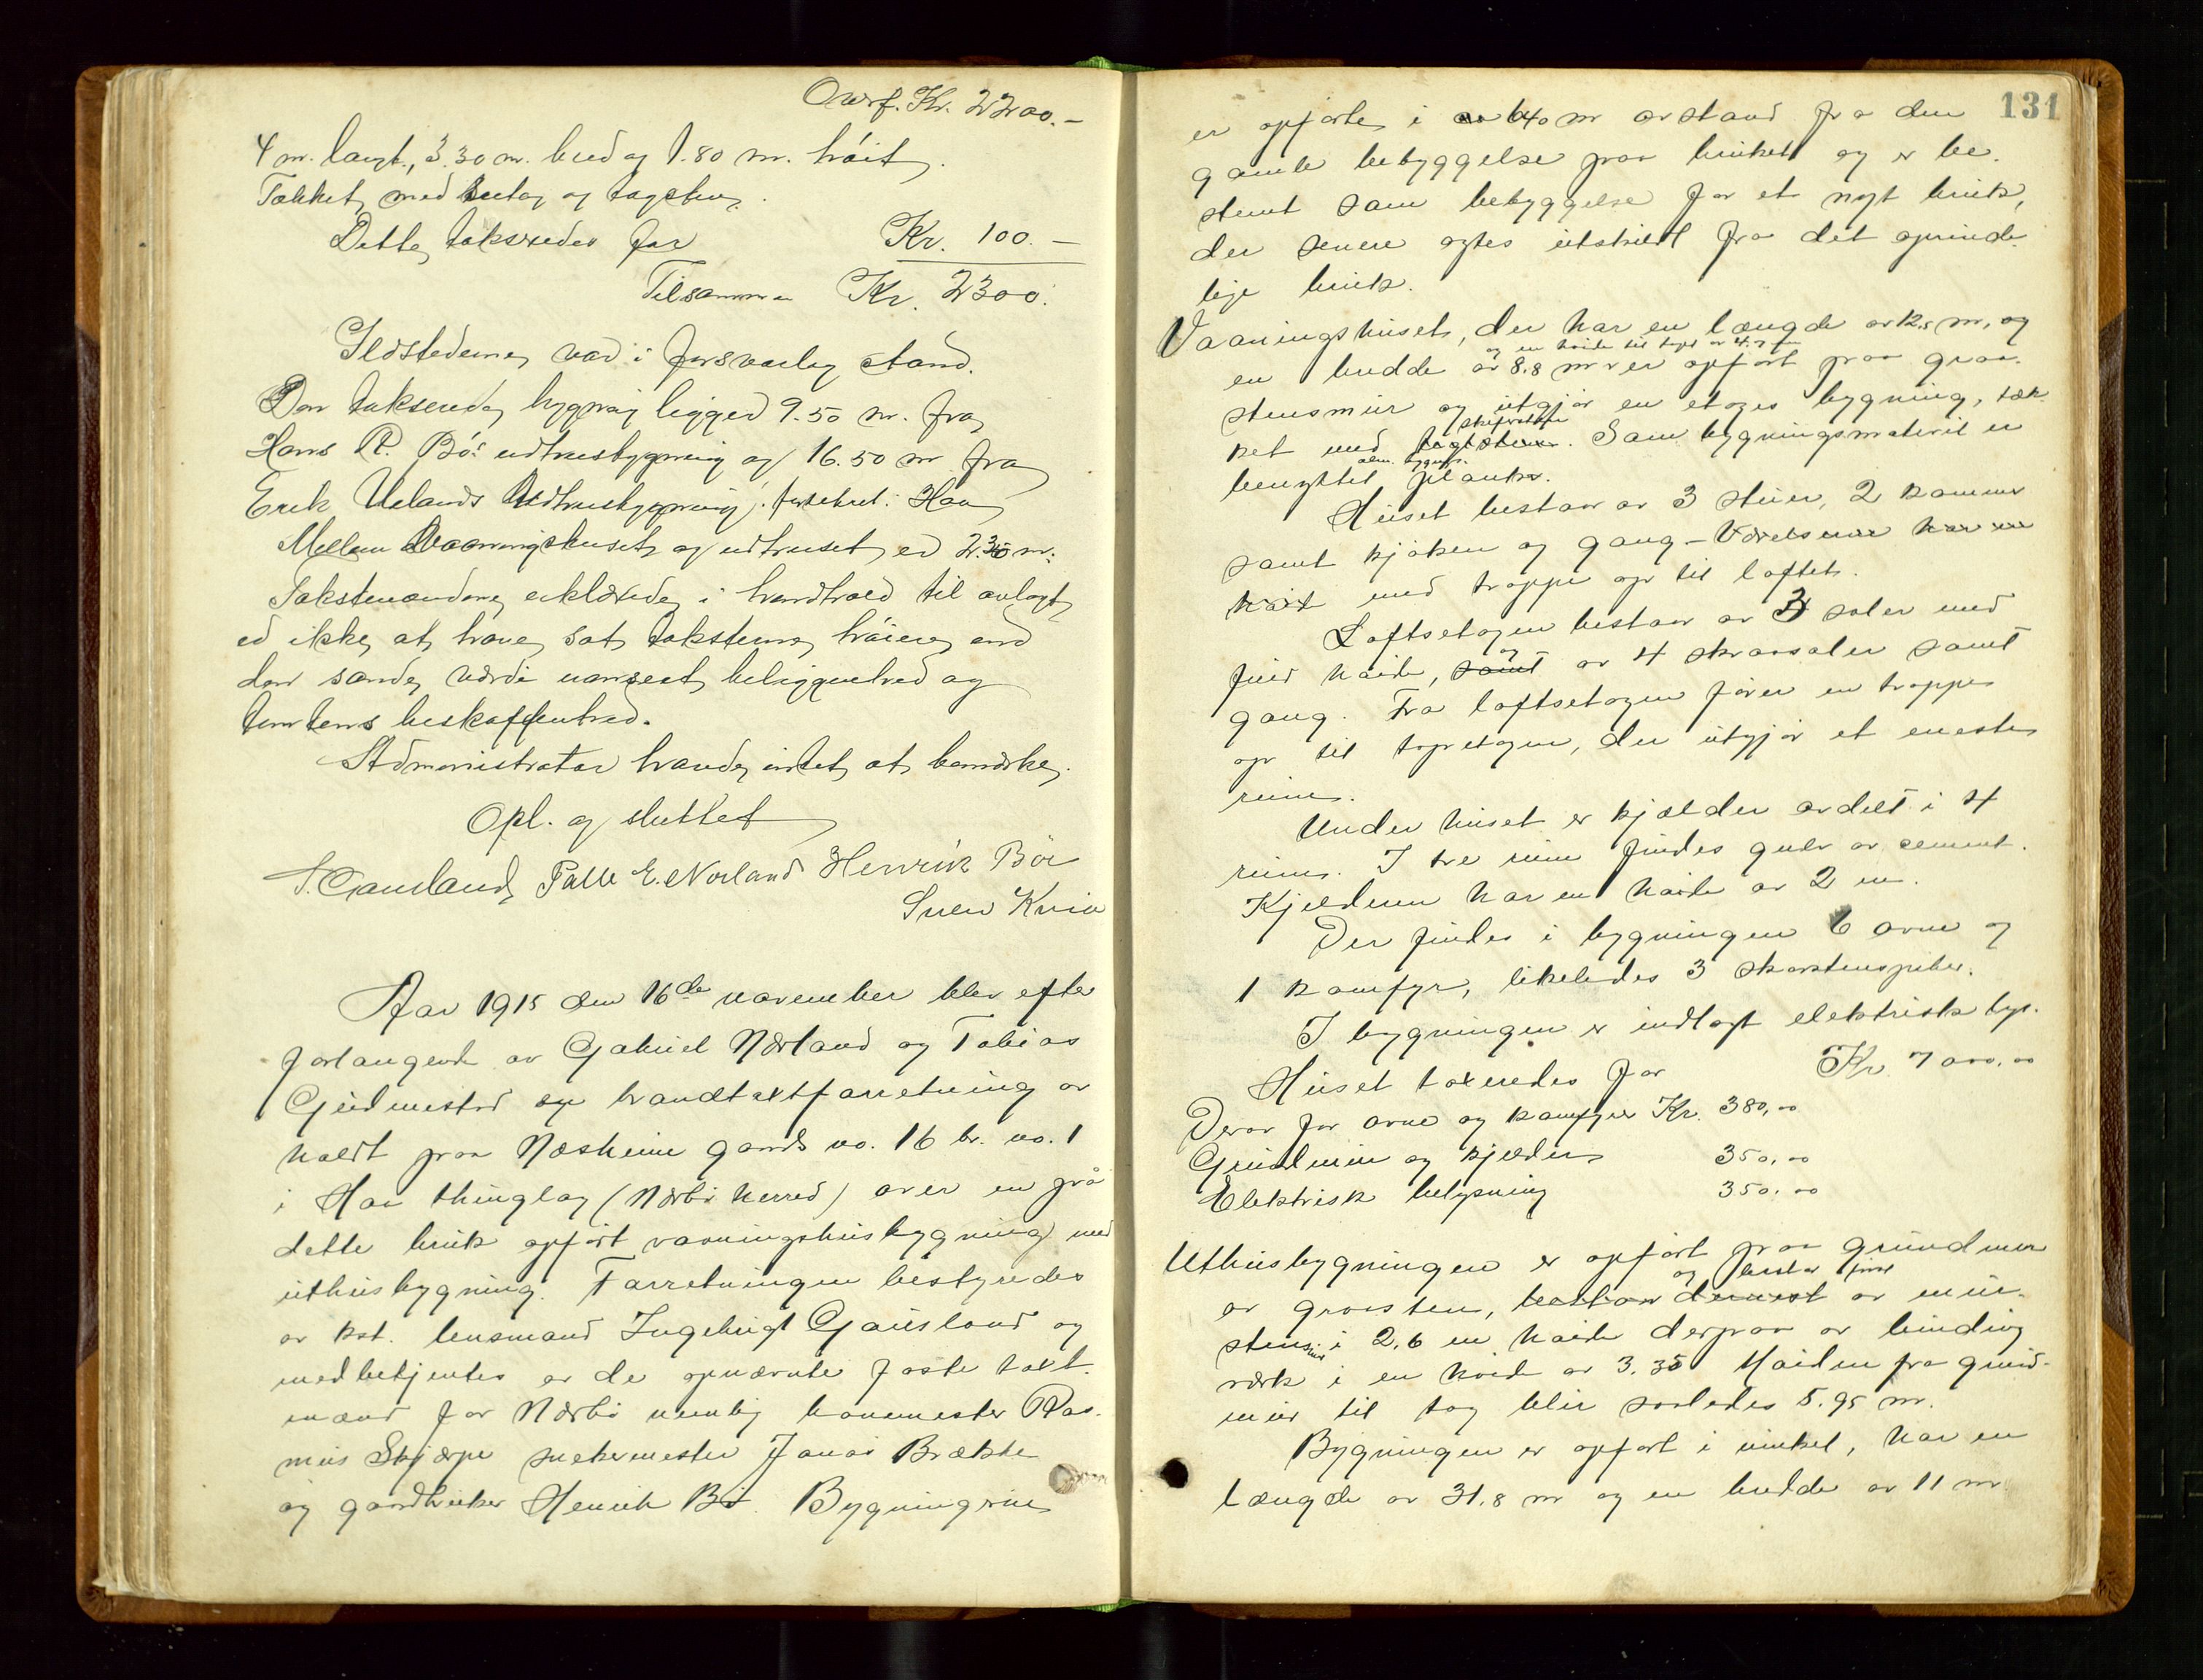 Overf. Kr. 2200.-
4 m. langt, 3.30 m. bred og 1.80 m. høit.
Tækket med butag og tagsten.
Dette taksredes for Kr. 100.-
Tilsammen Kr. 2300.
Ildstederne var i forsvarlig stand.
Den takserede bygning ligger 9.50 m. fra
Hans R. Bø's udhusbygning og 16.50 m fra
Erik Uelands Udhusbygning. Hans
Mellem Vaaningshuset og udhuset er 2.30 m.
Takstmændene erklærede i henhold til avlagt
ed ikke at have sat taksterne høiere end
den sande værdi uanseet beliggenhed og
tomtens beskaffenhed.
Administrator havde intet at bemærke.
Opl. og sluttet
T. Gausland, Palle E. Norland Henrik Bøe
Sven Kvia
Aar 1915 den 16de november blev efter
forlangende av Gabriel Nærland og Tobias
Gudmestad en brandtaxtforretning av
holdt paa Næsheim gards no. 16 br. no. 1
i Haa thinglag (Nærbø herred) over en på
dette bruk opført vaaningshusbygning med
uthusbygning. Forretningen bestyredes
av kst. lensmand Ingebrigt Gausland og
medbetjentes av de opnævnte faste taxt-
mænd for Nærbø nemlig havnemester Ras-
mus Skjærpe snekermester Jonas Brække
og gardbruker Henrik Bø. Bygningerne
131
er opførte i 640 m avstand fra den
gamle bebyggelse paa bruket og er be-
stemt som bebyggelse for et nyt bruk,
der senere agtes utskilt fra det oprinde-
lige bruk.
Vaaningshuset, der har en længde av 12.5 m, og
og en høide til taget av 4.7 m
en bredde av 8.8 m er opført paa graa-
stensmur og utgjør en etages bygning, tæk-
skiferstein
ket med taglstener. Som bygningsmateriel er
alm. bygnings
benyttet planker.
Huset bestaar av 3 stuer, 2 kammer
samt kjøken og gang - Værelserne har en
høit med trappe op til loftet.
Loftsetagen bestaar av 3 saler med
og
fuld høide, samt av 4 skraasaler samt
gang. Fra loftsetagen fører en trappe
op til topetagen, der utgjør et eneste
rum.
Under huset er kjælder avdelt i 4
rum. I tre rum findes gulv av cement.
Kjælderen har en høide av 2 m.
Der findes i bygningen 6 ovne og
1 komfyr, likeledes 3 skorstenspiber.
I bygningen er indlagt elektrisk lys.
Huset taxeredes for Kr. 7000,00
Derav for ovne og komfyrer Kr. 380,00
Grundmur og kjælder 350,00
Elektrisk belysning 350,00
Uthusbygningen er opført paa grundmur
og bestaar først
av graasten, bestaar dernæst av mur-
stensmur i 2,6 m høide derpaa av binding
værk i en høide av 3.35 Høiden fra grund-
mur til tag blir saaledes 5.95 m.
Bygningen er opført i vinkel, har en
længde av 31.8 m og en bredde av 11 m